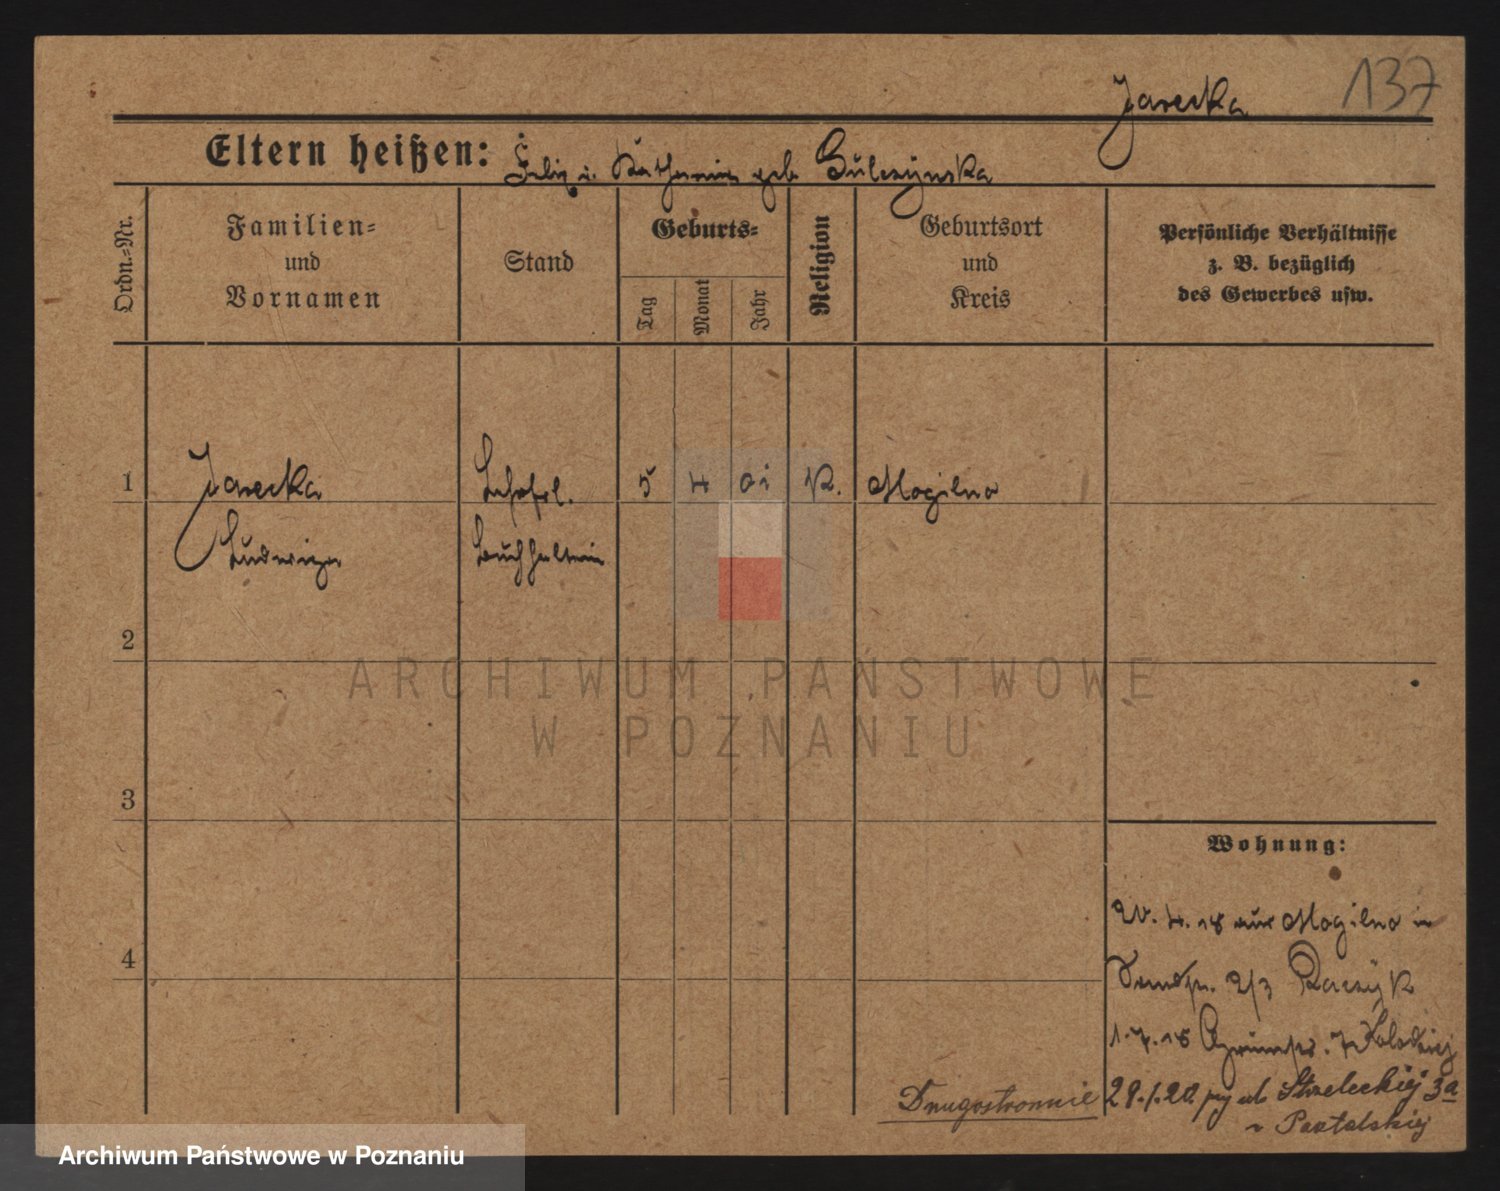 137
Jarecka
Eltern heißen: Felix u. Katharina geb Gulczyńska
Ordn.-Nr.
Familien-
und
Vornamen
Stand
Geburts-
Tag
Monat
Jahr
Religion
Geburtsort
und
Kreis
Persönliche Verhältnisse
z. B. bezüglich
des Gewerbes usw.
1
Jarecka
5 4 01 K. Mogilno
Ludwiga
Buchhalterin
2
ARCHIWUM PAŃSTWOWE
W POZNANIU
3
Wohnung:
20. 4. 18 aus Mogilno in
4
2/3 Raczyk
1. 7. 18 7 Kolodziej
Drugostronnie
28./.20. Strzeleckiej 3a
Archiwum Państwowe w Poznaniu